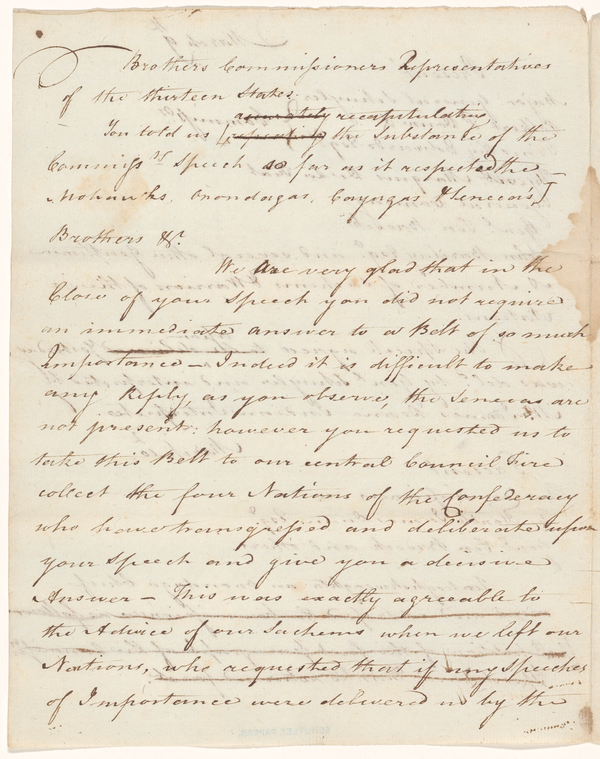 Brothers Commissioners Representatives
of the thirteen States.
accurately recapitulating
You told us [repeating the Substance of the
Commissrs. Speech so far as it respected the
Mohawks, Onondagas, Cayugas & Senecas,]
Brothers &c.
We are very glad that in the
Close of your Speech you did not require
an immediate answer to a Belt of so much
Importance – Indeed it is difficult to make
any Reply, as you observe, the Senecas are
not present: however you requested us to
take this Belt to our central Council Fire
collect the four Nations of the Confederacy
who have transgressed and deliberate upon
your Speech and give you a decisive
Answer – This was exactly agreeable to
the Advice of our Sachems when we left our
Nations, who requested that if any Speeches
of Importance were delivered us by the
SCHUYLER PAPERS